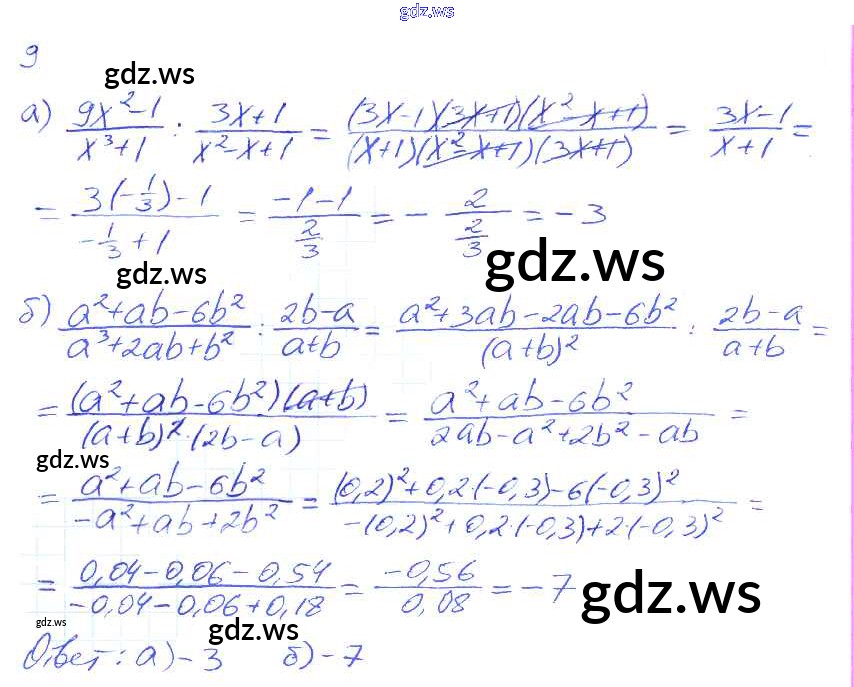 gdz.ws
9
gdz.ws
а) (9x²-1)/(x³+1) : (3x+1)/(x²-x+1) = ((3x-1)(3x+1)(x²-x+1))/((x+1)(x²-x+1)(3x+1)) = (3x-1)/(x+1) =
= (3(-1/3)-1)/(-1/3+1) = (-1-1)/(2/3) = - 2/(2/3) = -3
gdz.ws gdz.ws
б) (a²+ab-6b²)/(a³+2ab+b²) : (2b-a)/(a+b) = (a²+3ab-2ab-6b²)/((a+b)²) : (2b-a)/(a+b) =
= ((a²+ab-6b²)(a+b))/((a+b)²·(2b-a)) = (a²+ab-6b²)/(2ab-a²+2b²-ab) =
gdz.ws
= (a²+ab-6b²)/(-a²+ab+2b²) = ((0,2)²+0,2·(-0,3)-6(-0,3)²)/(-(0,2)²+0,2·(-0,3)+2·(-0,3)²) =
= (0,04-0,06-0,54)/(-0,04-0,06+0,18) = (-0,56)/(0,08) = -7
gdz.ws
gdz.ws gdz.ws
Ответ: а) -3 б) -7